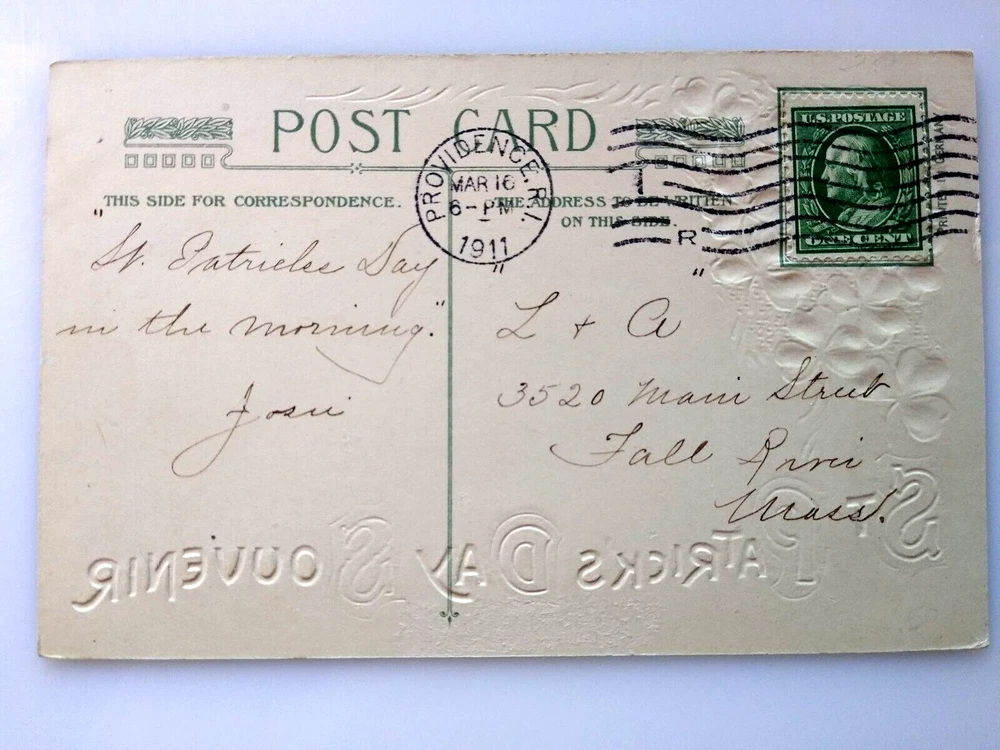 POST CARD
THIS SIDE FOR CORRESPONDENCE.
THE ADDRESS TO BE WRITTEN
ON THIS SIDE.
PROVIDENCE, R.I.
MAR 16
6-PM
1911
R
U.S. POSTAGE
ONE CENT
PRINTED IN GERMANY
" St. Patricks Day
in the morning. "
Josie
" "
L + A
3520 Main Street
Fall River
Mass.
ST. PATRICK'S DAY SOUVENIR